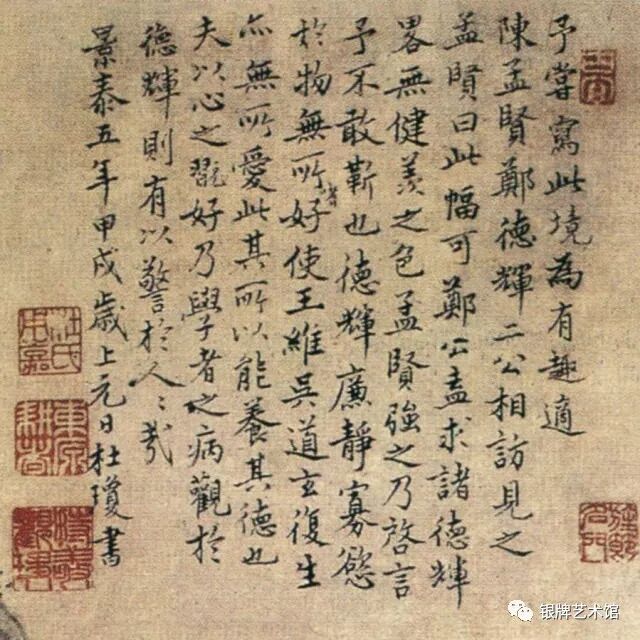 予嘗寫此境為有趣適
陳孟賢鄭德輝二公相訪見之
孟賢曰此幅可鄭公盍求諸德輝
畧無健羨之色孟賢強之乃啓言
予不敢靳也德輝廉靜寡慾
於物無所好使王維吳道玄復生
亦無所愛此其所以能養其德也
夫以心之翫好乃學者之病觀於
德輝則有以警於人〻哉
景泰五年甲戌歲上元日杜瓊書
東原耕者
银牌艺术馆